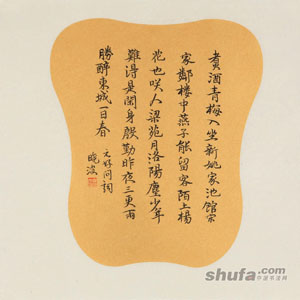 煮酒青梅入坐新姚家池館宋
家鄰樓中燕子能留客陌上楊
花也咲人梁苑月洛陽塵少年
難得是閑身殷勤昨夜三更雨
勝醉東城一日春
元好問詞
曉波
shufa.com
中国书法网